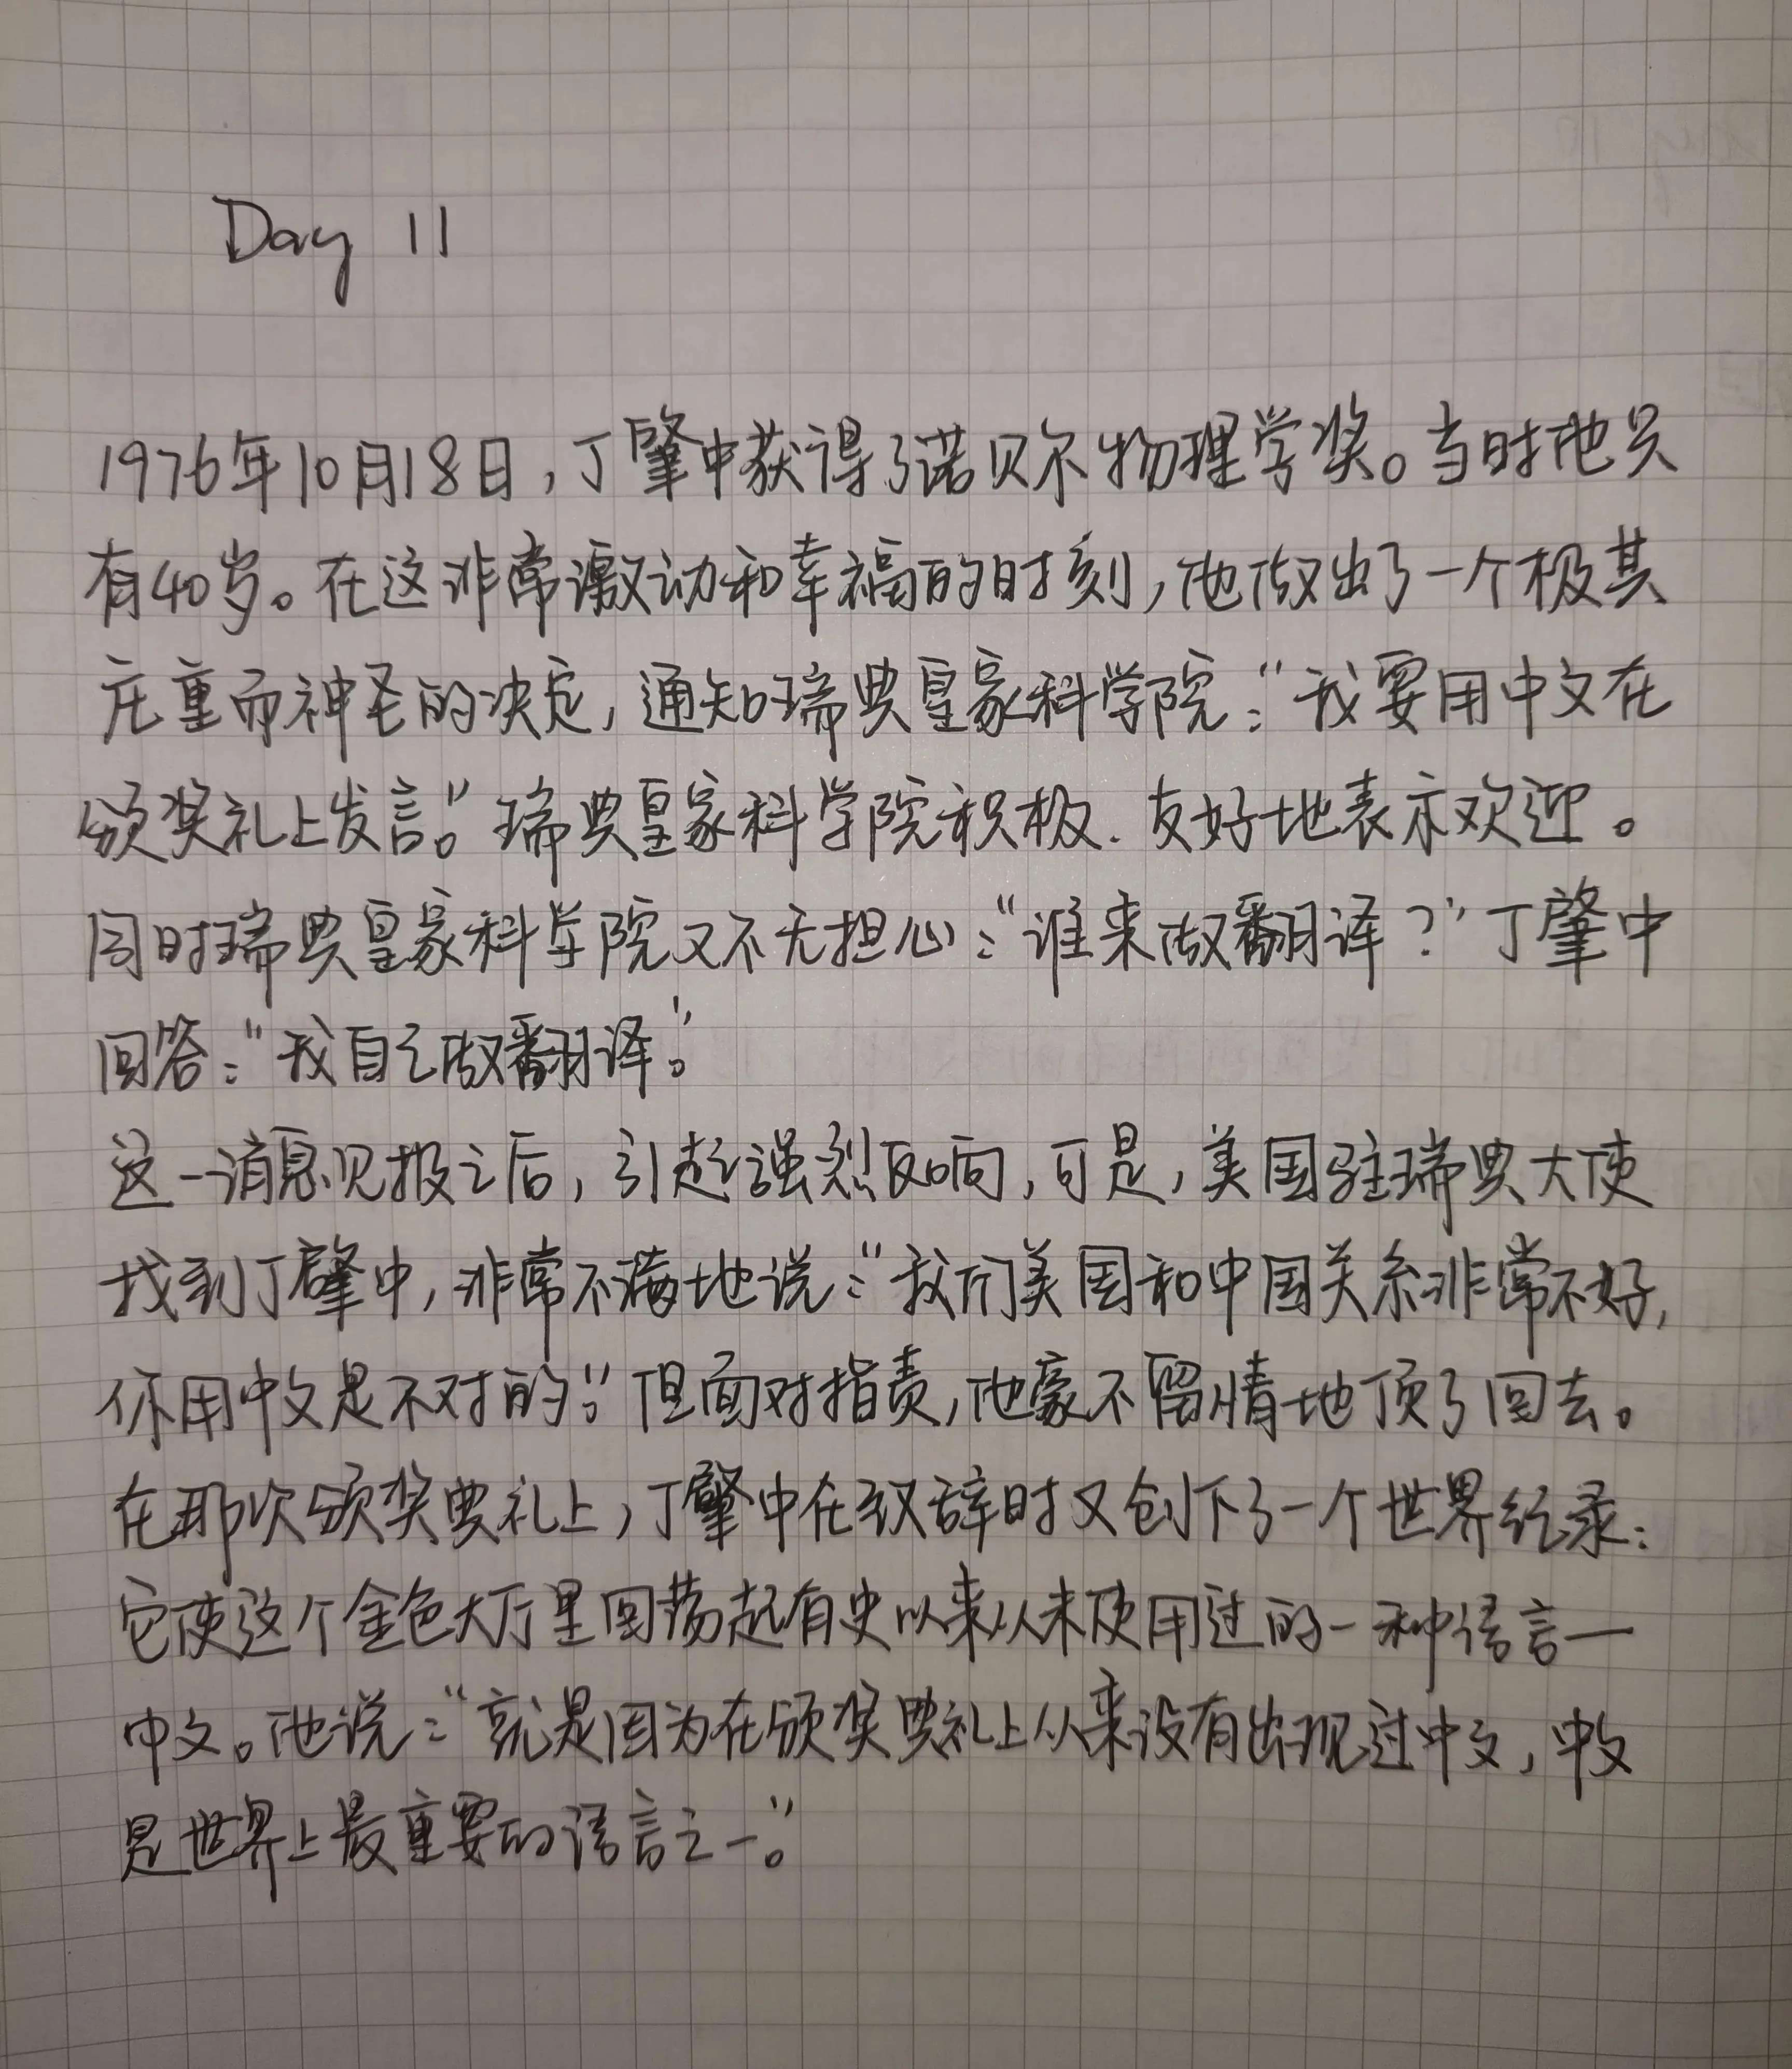 Day 11
1976年10月18日,丁肇中获得了诺贝尔物理学奖。当时他只
有40岁。在这非常激动和幸福的时刻,他做出了一个极其
庄重而神圣的决定,通知瑞典皇家科学院:“我要用中文在
颁奖礼上发言。”瑞典皇家科学院积极、友好地表示欢迎。
同时瑞典皇家科学院又不无担心:“谁来做翻译?”丁肇中
回答:“我自己做翻译。”
这一消息见报之后,引起强烈反响,可是,美国驻瑞典大使
找到丁肇中,非常不满地说:“我们美国和中国关系非常不好,
你用中文是不对的。”但面对指责,他毫不留情地顶了回去。
在那次颁奖典礼上,丁肇中在致辞时又创下了一个世界纪录:
它使这个金色大厅里回荡起有史以来从未使用过的一种语言—
中文。他说:“就是因为在颁奖典礼上从来没有出现过中文,中文
是世界上最重要的语言之一。”